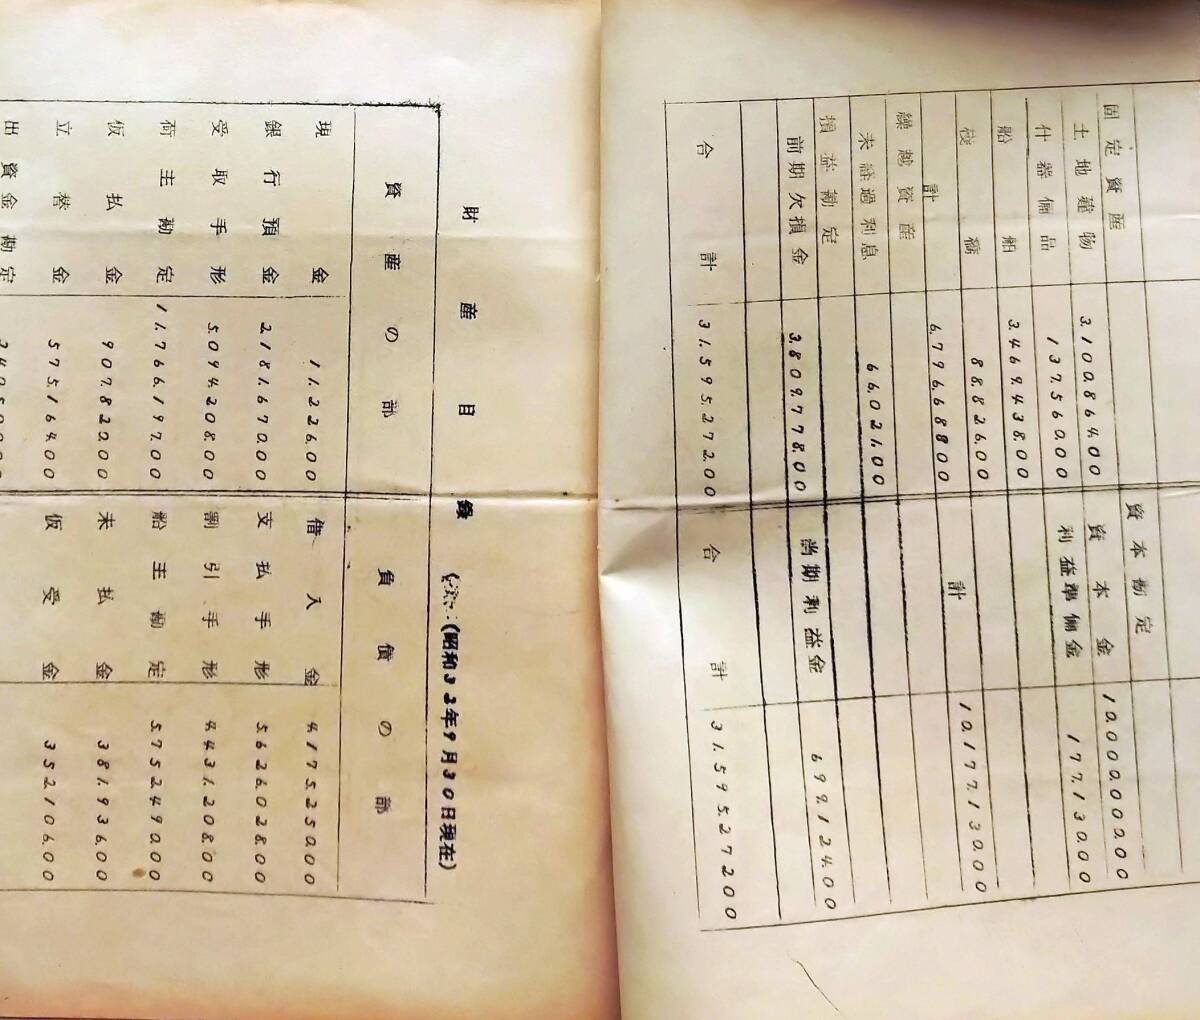 資本勘定
固定資産 資本金 10.000.000.00
土地建物 3.100.864.00 利益準備金 177.130.00
什器備品 137.560.00
船舶 3.469.438.00
桟橋 88.826.00 計 10.177.130.00
計 6.796.688.00
繰越資産
未経過利息 66.021.00
損益勘定 当期利益金 699.124.00
前期欠損金 3.809.778.00
合計 31.595.272.00 合計 31.595.272.00
財産目録 (昭和32年9月30日現在)
資産の部 負債の部
現金 11.226.00 借入金 4.175.250.00
銀行預金 2.181.670.00 支払手形 5.626.028.00
受取手形 5.094.208.00 割引手形 4.431.208.00
荷主勘定 11.766.197.00 船主勘定 5.752.490.00
仮払金 907.820.00 未払金 381.936.00
立替金 575.164.00 仮受金 352.106.00
出資金勘定